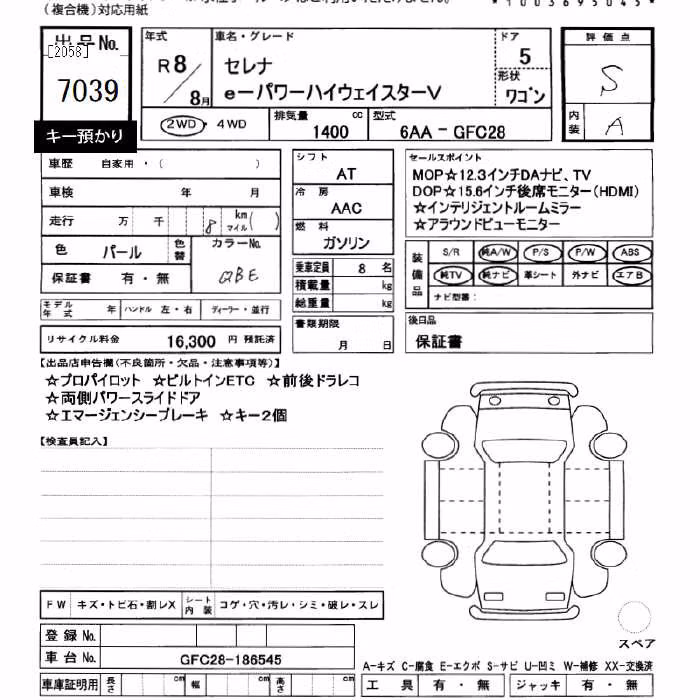 (複合機)対応用紙
*1003695045*
出品No.
[2058]
7039
キー預かり
年式
R8/8月
車名・グレード
セレナ
e-パワーハイウェイスターV
ドア
5
形状
ワゴン
2WD・4WD
排気量 1400 cc
型式 6AA-GFC28
評価点
S
内装 A
車歴 自家用・( )
車検 年 月
走行 万 千 8 km マイル( )
色 パール 色替
カラーNo. QBE
保証書 有・無
モデル年式 年 ハンドル 左・右 ディーラー・並行
リサイクル料金 16,300 円 預託済
シフト AT
冷房 AAC
燃料 ガソリン
乗車定員 8 名
積載量 kg
総重量 kg
書類期限
月 日
セールスポイント
MOP☆12.3インチDAナビ、TV
DOP☆15.6インチ後席モニター(HDMI)
☆インテリジェントルームミラー
☆アラウンドビューモニター
装備品
S/R 純A/W P/S P/W ABS
純TV 純ナビ 革シート 外ナビ エアB
ナビ型番:
後日品
保証書
【出品店申告欄(不良箇所・欠品・注意事項等)】
☆プロパイロット ☆ビルトインETC ☆前後ドラレコ
☆両側パワースライドドア
☆エマージェンシーブレーキ ☆キー2個
【検査員記入】
FW キズ・トビ石・割レX シート内装 コゲ・穴・汚レ・シミ・破レ・スレ
登録No.
車台No. GFC28-186545
車庫証明用 長さ cm 幅 cm 高さ cm
スペア
A-キズ C-腐食 E-エクボ S-サビ U-凹ミ W-補修 XX-交換済
工具 有・無 ジャッキ 有・無